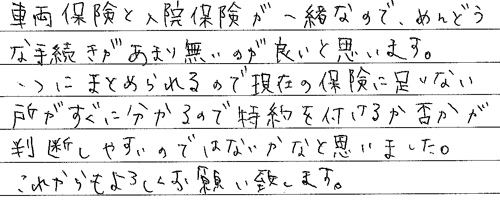 車両保険と入院保険が一緒なので、めんどう
な手続きがあまり無いのが良いと思います。
一つにまとめられるので現在の保険に足りない
所がすぐに分かるので特約を付けるか否かが
判断しやすいのではないかなと思いました。
これからもよろしくお願い致します。